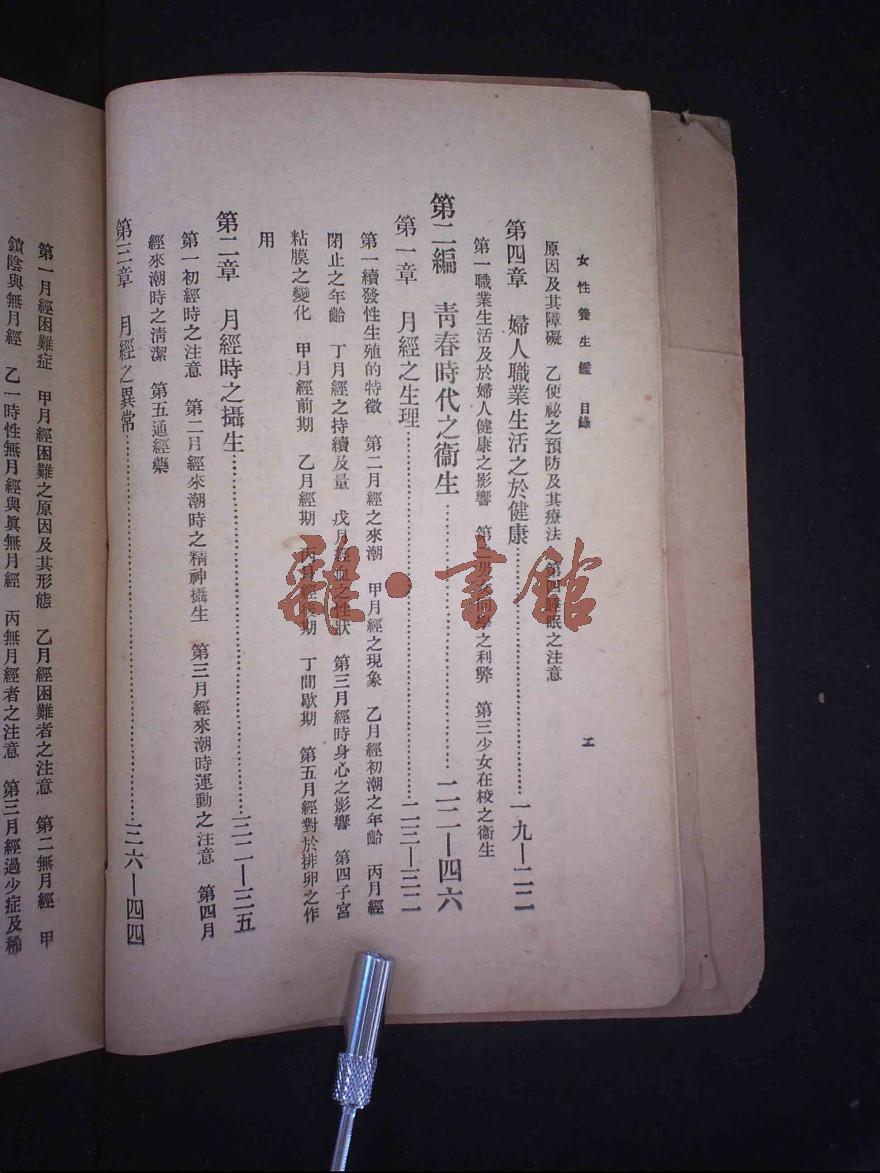 女性養生鑑　目錄
原因及其障礙　乙便祕之預防及其療法　第四睡眠之注意
第四章　婦人職業生活之於健康……一九—二二
第一職業生活及於婦人健康之影響　第二男女同學之利弊　第三少女在校之衞生
第二編　靑春時代之衞生……二二—四六
第一章　月經之生理……二三—三二
第一續發性生殖的特徵　第二月經之來潮　甲月經之現象　乙月經初潮之年齡　丙月經
閉止之年齡　丁月經之持續及量　戊月經血之性狀　第三月經時身心之影響　第四子宮
粘膜之變化　甲月經前期　乙月經期　丙月經後期　丁間歇期　第五月經對於排卵之作
用
第二章　月經時之攝生……三二—三五
第一初經時之注意　第二月經來潮時之精神攝生　第三月經來潮時運動之注意　第四月
經來潮時之淸潔　第五通經藥
第三章　月經之異常……三六—四四
第一月經困難症　甲月經困難之原因及其形態　乙月經困難者之注意　第二無月經　甲
鎖陰與無月經　乙一時性無月經與眞無月經　丙無月經者之注意　第三月經過少症及稀
雜·書館